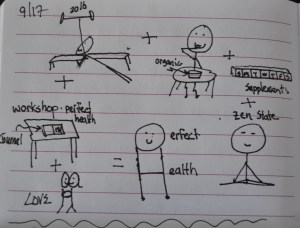 9/17
20 lb
organic
S M T W T F S
supplements
workshop · perfect
health
Journal
zen state
Perfect
Health
LOVE